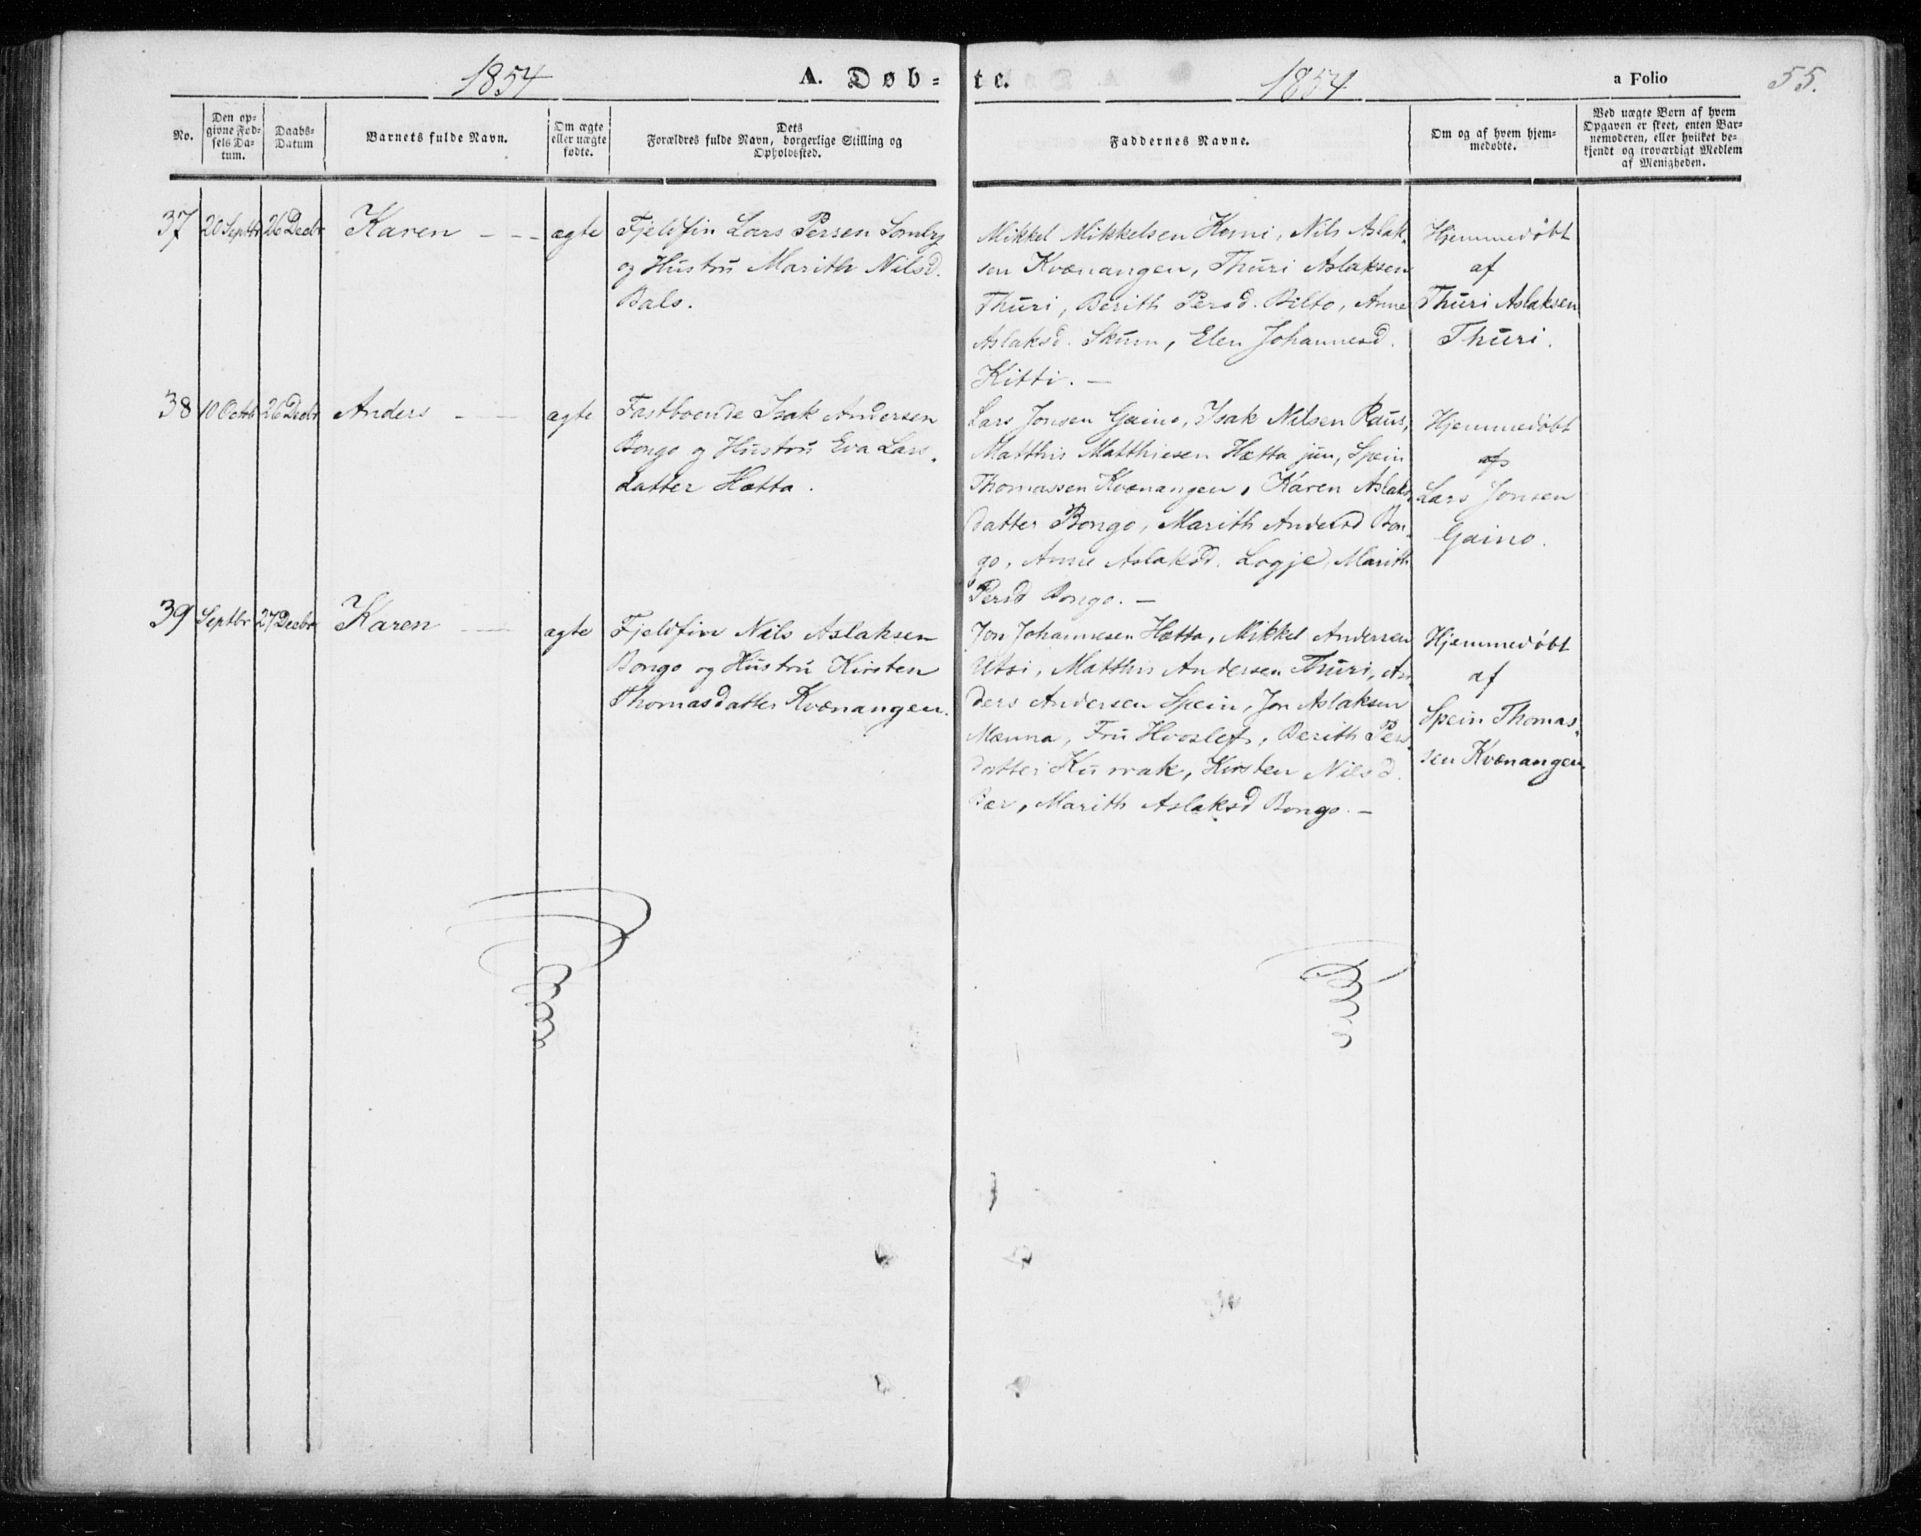 1854 A. Døb-
te. 1854 a Folio 55.
No.
Den op-
givne Fød-
sels Da-
tum.
Daabs-
Datum
Barnets fulde Navn.
Om ægte
eller uægte
fødte.
Dets
Forældres fulde Navn, borgerlige Stilling og
Opholdssted.
Faddernes Navne.
Om og af hvem hjem-
medøbte.
Ved uægte Børn af hvem
Opgaven er skeet, enten Bar-
nemoderen, eller hvilket be-
kjendt og troværdigt Medlem
af Menigheden.
37 20 Septbr 26 Decbr Karen - - - ægte
Fjeldfin Lars Persen Somby
og Hustru Marith Nilsd.
Bals.
Mikkel Mikkelsen Kemi, Nils Aslak-
sen Kvænangen, Thuri Aslaksen
Thuri, Berith Persd. Bilto, Anne
Aslaksd. Skum, Elen Johannesd.
Kitti. -
Hjemmedøbt
af
Thuri Aslaksen
Thuri.
38 10 Octbr 26 Decbr Anders - - ægte
Fastboende Isak Andersen
Bongo og Hustru Eva Lars-
datter Hætta.
Lars Jonsen Gaino, Isak Nilsen Paus,
Matthis Matthiesen Hætta jun, Spein
Thomassen Kvænangen, Karen Aslaks-
datter Bongo, Marith Andersd Bon-
go, Anne Aslaksd. Logje, Marith
Persd Bongo. -
Hjemmedøbt
af
Lars Jonsen
Gaino.
39 Septbr 27 Decbr Karen - ægte
Fjeldfin Nils Aslaksen
Bongo og Hustru Kirsten
Thomasdatter Kvænangen.
Jon Johannesen Hætta, Mikkel Andersen
Utsi, Matthis Andersen Thuri, An-
ders Andersen Spein, Jon Aslaksen
Mænna, Fru Hvoslef, Berith Pers-
datter Kurrak, Kirsten Nilsd.
Bær, Marith Aslaksd Bongo. -
Hjemmedøbt
af
Spein Thomas-
sen Kvænangen